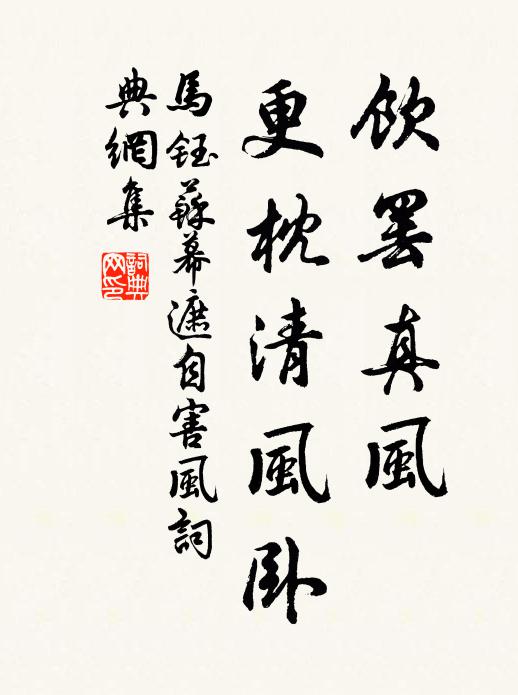 飲罷真風
更枕清風臥
馬鈺蘇幕遮自害風詞
典網集
詞典
网印